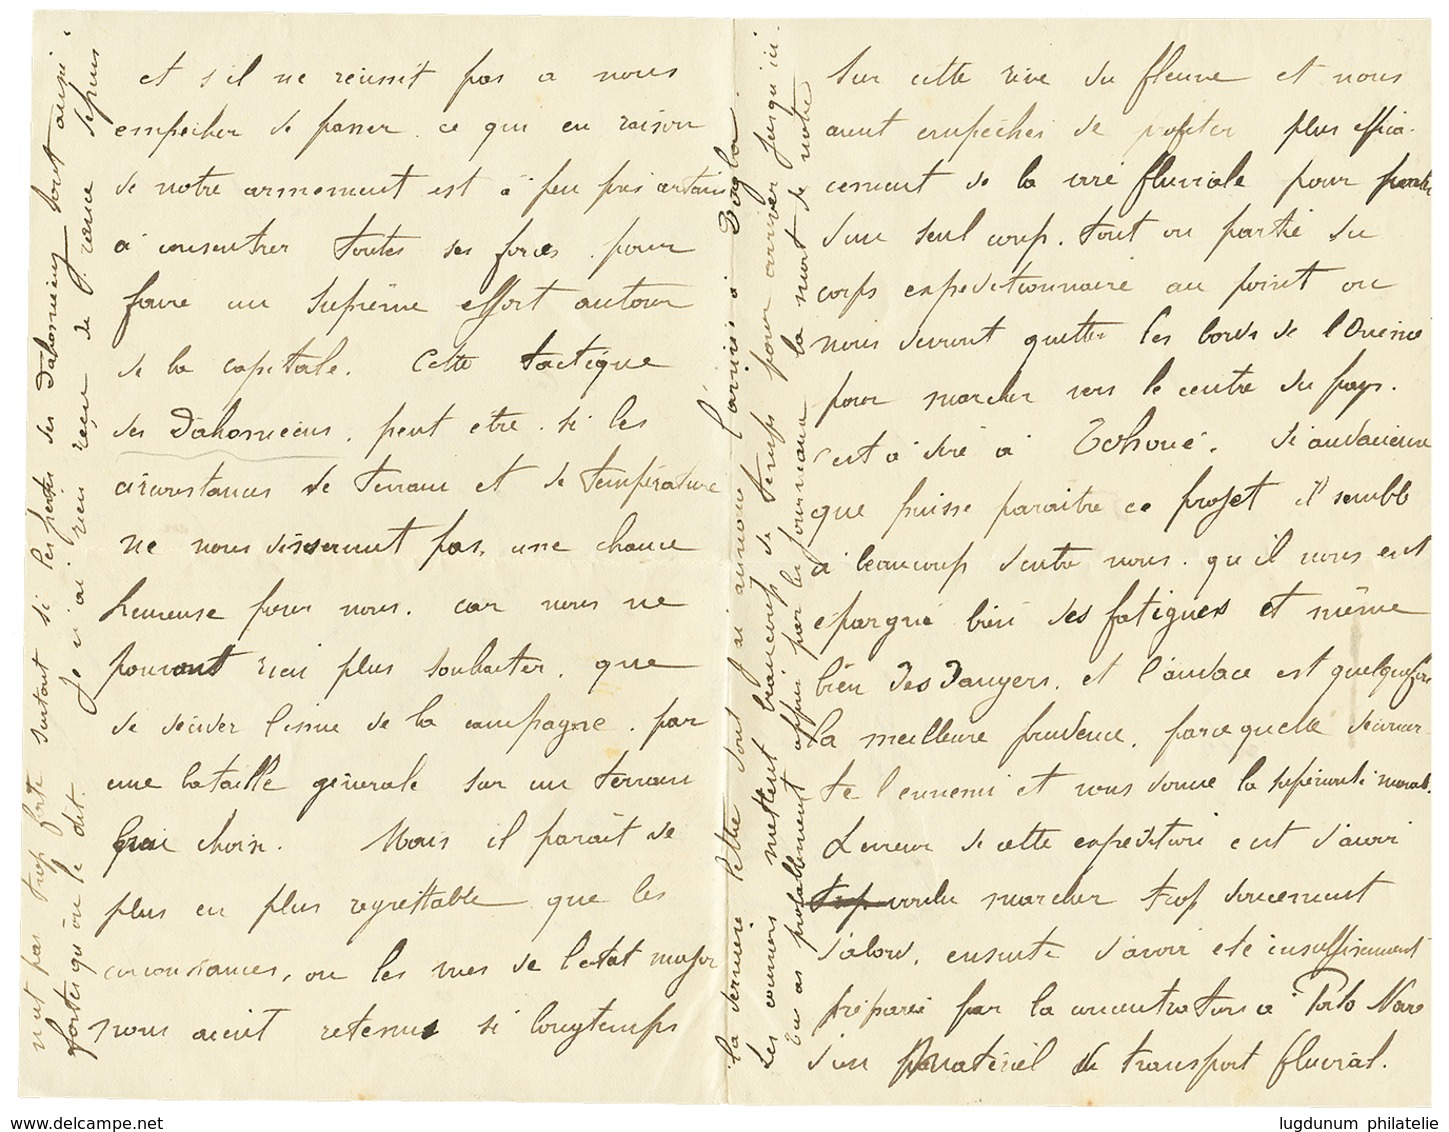 et s'il ne réussit pas a nous
empecher de passer. ce qui en raison
de notre armement est à peu près certain
à consentrer toutes ses forces pour
faire un suprême effort autour
de la capitale. Cette tactique
des Dahoméens, peut etre. si les
circonstances de terrain et de température
ne nous desservent pas, une chance
heureuse pour nous. car nous ne
pouvons rien plus souhaiter. que
de décider l'issue de la campagne. par
une bataille générale sur un terrain
choisi. Mais il paraît de
plus en plus regrettable que les
circonstances, ou les vues de l'etat major
nous aient retenus si longtemps
sur cette rive du fleuve et nous
aient empêchés de profiter plus effica-
cement de la voie fluviale pour porter
d'un seul coup. tout ou partie du
corps expéditionnaire au point ou
nous devront quitter les bords de l'Ouémé
pour marcher vers le centre du pays.
c'est à dire à Tohoué. Si audacieux
que puisse paraitre ce projet il semble
à beaucoup d'entre nous. qu'il nous eut
épargné bien des fatigues et même
bien des dangers. et l'audace est quelquefois
la meilleure prudence, parcequelle déconcer-
te l'ennemi et vous donne la supériorité morale.
L'erreur de cette expédition est d'avoir
voulu marcher trop doucement
d'abord, ensuite d'avoir eté insuffisamment
préparée par la concentration à Porto Novo
d'un matériel de transport fluvial.
la derniere lettre dont j'ai annoncé l'arrivée à Dogba.
Les courriers mettent beaucoup de temps pour arriver jusqu'ici.
Tu as probablement appris par les journaux la mort de notre
n'est pas trop forte surtout si les pertes des Dahoméens sont aussi
fortes qu'on le dit. Je n'ai rien reçu de france depuis
lugdunum philatelie